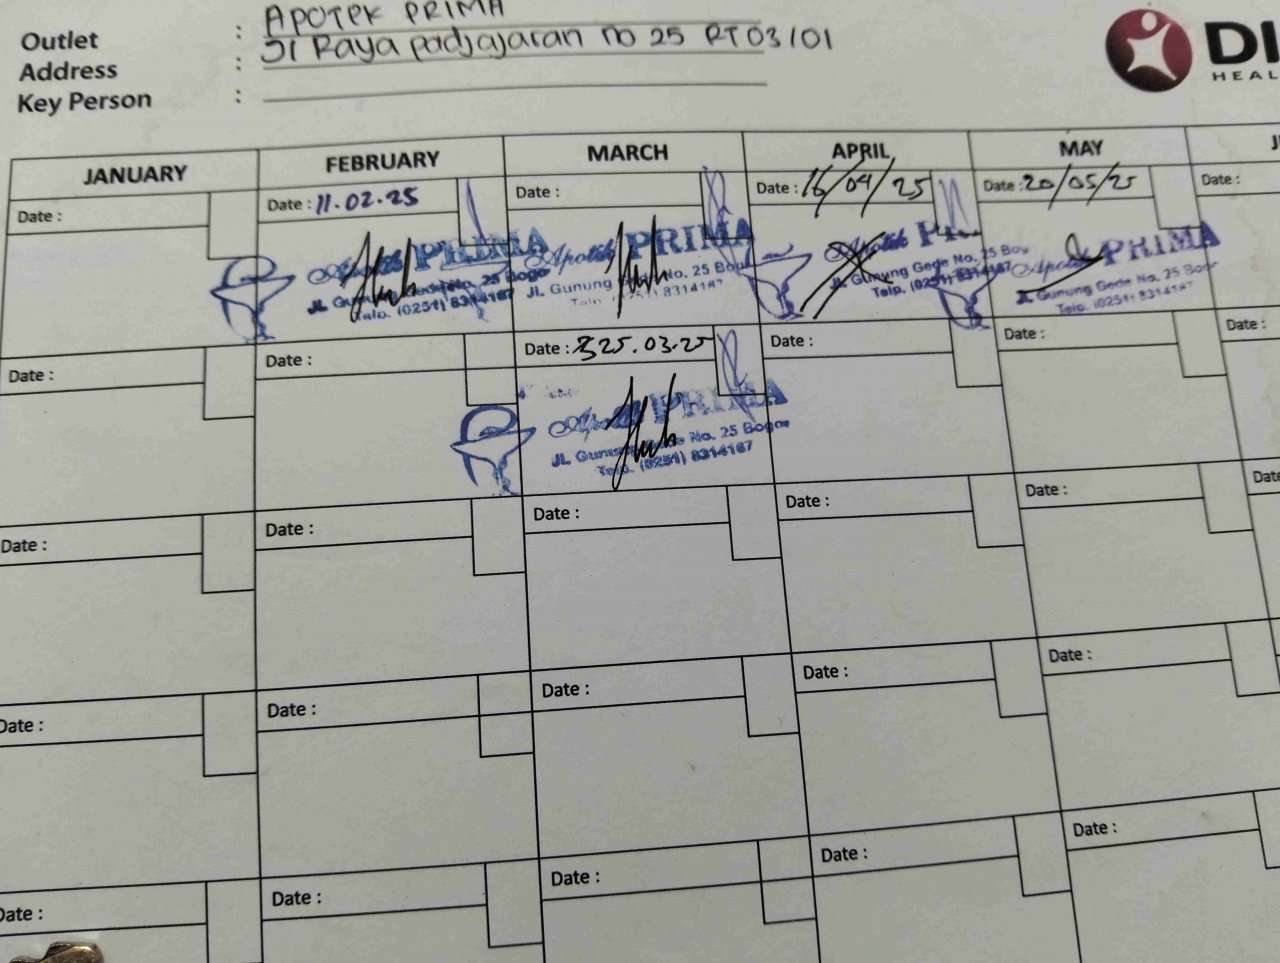 Outlet : APOTEK PRIMA
Address : Jl Raya padjajaran no 25 RT 03/01
Key Person :
DI
HEAL
JANUARY FEBRUARY MARCH APRIL MAY J
Date : Date : 11.02.25 Date : Date : 16/04/25 Date : 20/05/25 Date :
Apotik PRIMA
JL. Gunung Gede No. 25 Bogo
Telp. (0251) 8314167
Apotik PRIMA
JL. Gunung Gede No. 25 Bog
Telp. (0251) 8314167
Apotik PRIMA
JL. Gunung Gede No. 25 Bog
Telp. (0251) 8314167
Apotik PRIMA
JL. Gunung Gede No. 25 Bogor
Telp. (0251) 8314167
Date : Date : Date : 25.03.25 Date : Date : Date :
Apotik PRIMA
JL. Gunung Gede No. 25 Bogor
Telp. (0251) 8314167
Date : Date : Date : Date : Date : Date
Date : Date : Date : Date : Date :
Date : Date : Date : Date : Date :